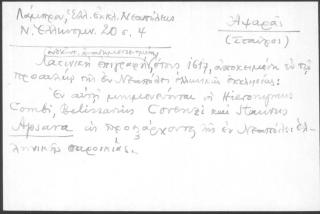 Λάμπρου, Ἑλλ. ἐκκλ. Νεαπόλεως
Ν. Ἑλληνομν. 20 σ. 4
Ἀψαρᾶς
(Σταῦρος)
Λατινικὴ ἐπιγραφή, ἔτους 1617, ἀποκειμένη ἐν τῷ
προαυλίῳ τῆς ἐν Νεαπόλει ἑλληνικῆς ἐκκλησίας:
Ἐν αὐτῇ μνημονεύονται οἱ Hieronymus
Combi, Belissarius Corenzi καὶ Staurus
Apsaras ὡς προεξάρχοντες τῆς ἐν Νεαπόλει ἑλ-
ληνικῆς παροικίας.